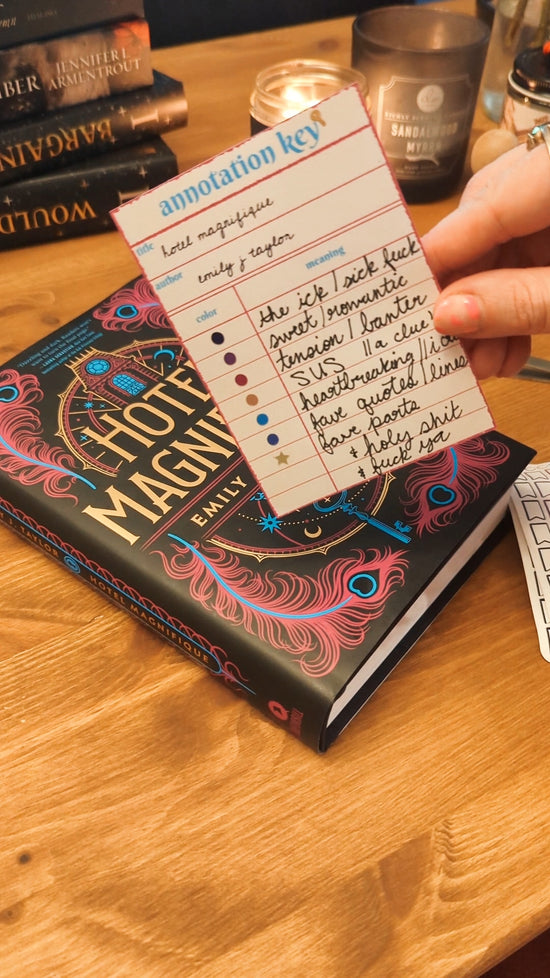 JENNIFER L.
ARMENTROUT
BARGAIN
WOULD
SANDALWOOD
MYRRH
annotation key
title hotel magnifique
author emily j taylor
color meaning
the ick / sick fuck
sweet / romantic
tension / banter
SUS || a clue?
heartbreaking
fave quotes / lines
fave parts
& holy shit
& fuck ya
HOTE
MAGNI
EMILY
J. TAYLOR HOTEL MAGNIFIQUE